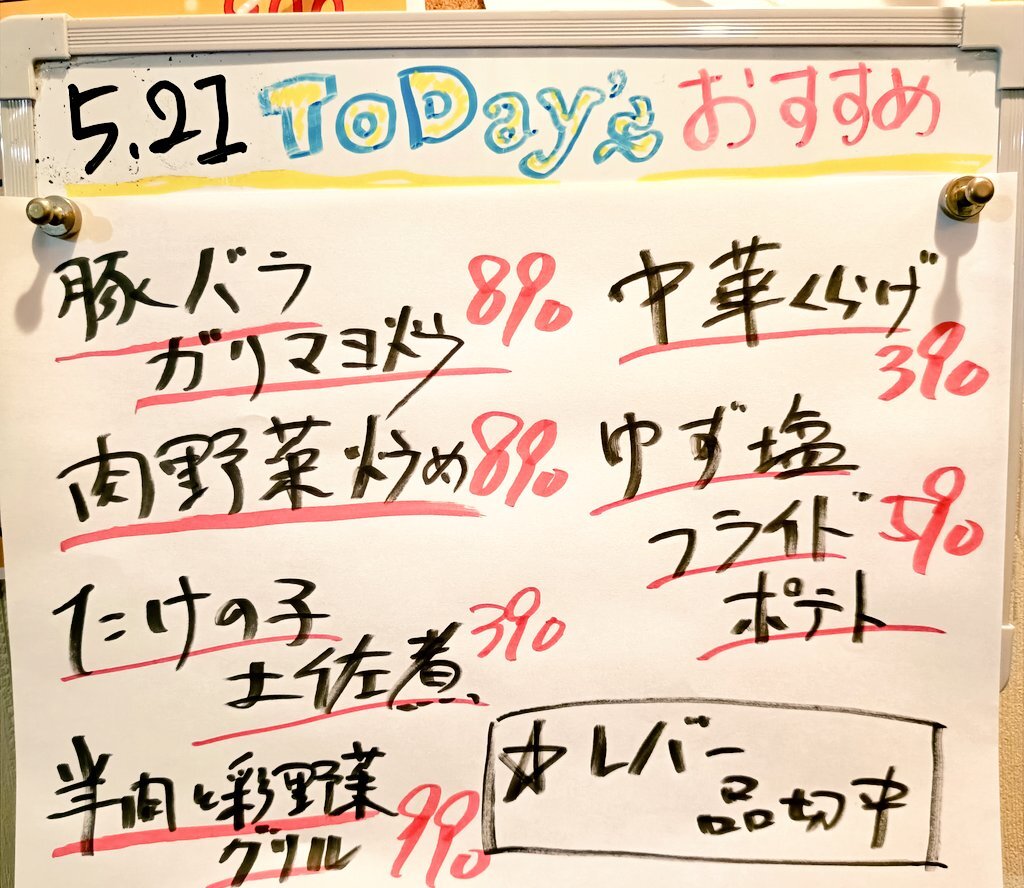 5.21 ToDay's おすすめ
豚バラ
ガリマヨ炒め 890
肉野菜炒め 890
たけの子
土佐煮 390
羊肉と彩野菜
グリル 990
中華くらげ
390
ゆず塩
フライド 590
ポテト
☆レバー
品切中